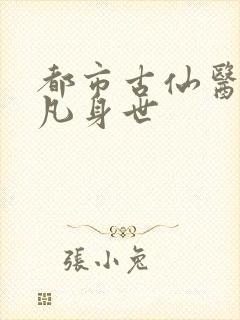 都市古仙醫
凡身世
張小兔